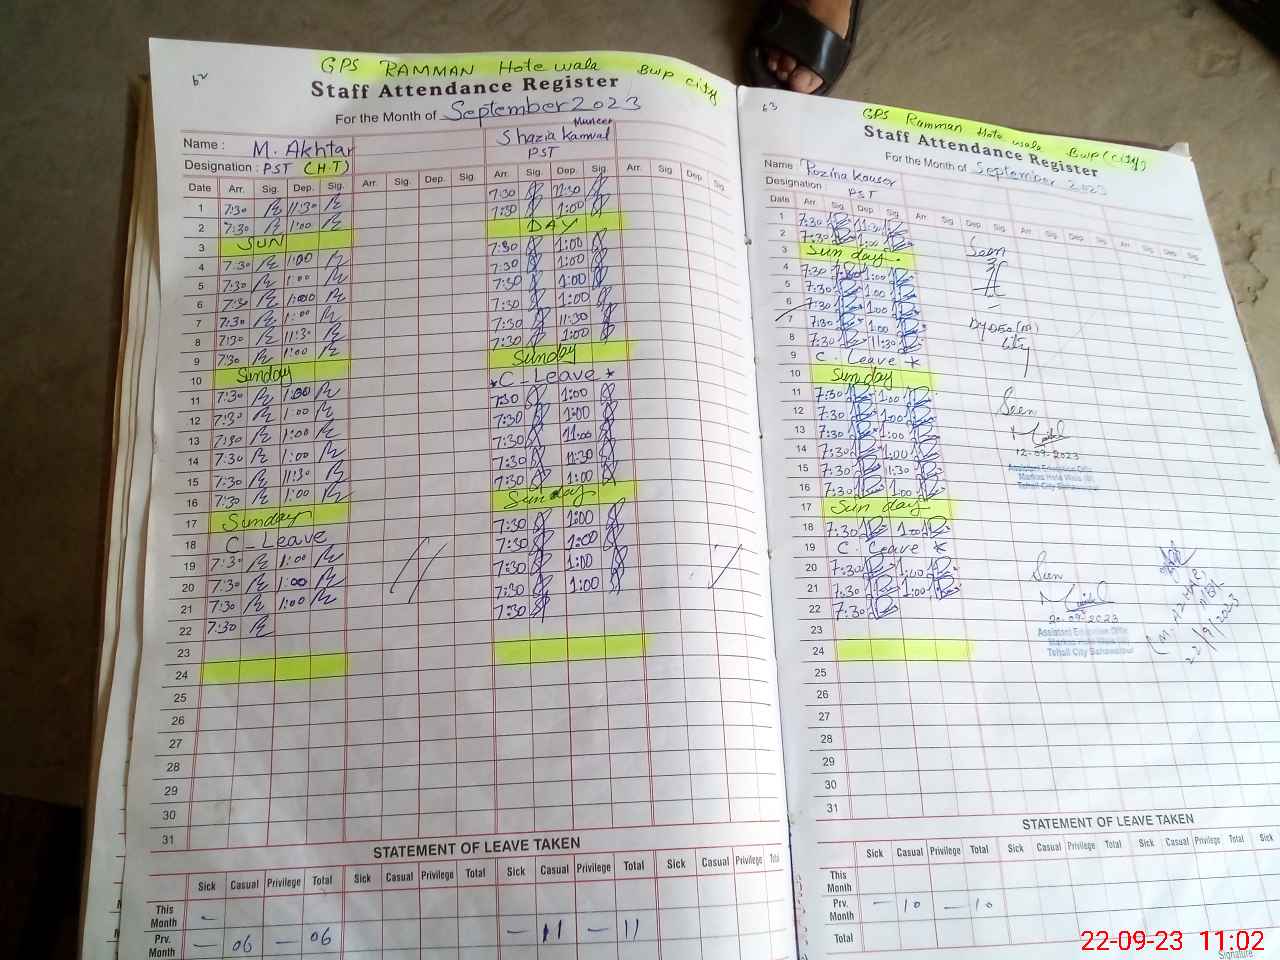 62
GPS RAMMAN Hote wala Bwp city
Staff Attendance Register
For the Month of September 2023
Name : M. Akhtar Shazia Kanwal Muneer
Designation : PST (H.T) PST
Date Arr. Sig. Dep. Sig. Arr. Sig. Dep. Sig. Arr. Sig. Dep. Sig. Arr. Sig. Dep. Sig.
1 7:30 11:30 7:30 11:30
2 7:30 1:00 7:30 1:00
3 SUN DAY
4 7:30 1:00 7:30 1:00
5 7:30 1:00 7:30 1:00
6 7:30 1:00 7:30 1:00
7 7:30 1:00 7:30 1:00
8 7:30 11:30 7:30 11:30
9 7:30 1:00 7:30 1:00
10 Sunday Sunday
11 7:30 1:00 *C-Leave*
12 7:30 1:00 7:30 1:00
13 7:30 1:00 7:30 1:00
14 7:30 1:00 7:30 11:00
15 7:30 11:30 7:30 11:30
16 7:30 1:00 7:30 1:00
17 Sunday Sunday
18 C-Leave 7:30 1:00
19 7:30 1:00 7:30 1:00
20 7:30 1:00 7:30 1:00
21 7:30 1:00 7:30 1:00
22 7:30 7:30
23
24
25
26
27
28
29
30
31
STATEMENT OF LEAVE TAKEN
Sick Casual Privilege Total Sick Casual Privilege Total Sick Casual Privilege Total Sick Casual Privilege
This Month -
Prv. Month - 06 - 06 - 11 - 11
63
GPS Ramman Hote wala Bwp (city)
Staff Attendance Register
For the Month of September 2023
Name : Rozina Kouser
Designation : PST
Date Arr. Sig. Dep. Sig. Arr. Sig. Dep. Sig. Arr. Sig. Dep. Sig. Arr. Sig. Dep. Sig.
1 7:30 11:30
2 7:30 1:00
3 Sunday.
4 7:30 1:00
5 7:30 1:00
6 7:30 1:00
7 7:30 1:00
8 7:30 11:30
9 C. Leave *
10 Sunday
11 7:30 1:00
12 7:30 1:00
13 7:30 1:00
14 7:30 1:00
15 7:30 11:30
16 7:30 1:00
17 Sunday
18 7:30 1:00
19 C. Leave *
20 7:30 1:00
21 7:30 1:00
22 7:30
23
24
25
26
27
28
29
30
31
Seen
Dy DEO (m)
City
Seen
12-09-2023
Assistant Education Officer
Markaz Hote Wala (M)
Tehsil City Bahawalpur
Seen
20-09-2023
Assistant Education Officer
Markaz Hote Wala (M)
Tehsil City Bahawalpur
22/9/2023
STATEMENT OF LEAVE TAKEN
Sick Casual Privilege Total Sick Casual Privilege Total Sick Casual Privilege Total Sick
This Month
Prv. Month - 10 - 10
Total
Signature
22-09-23 11:02